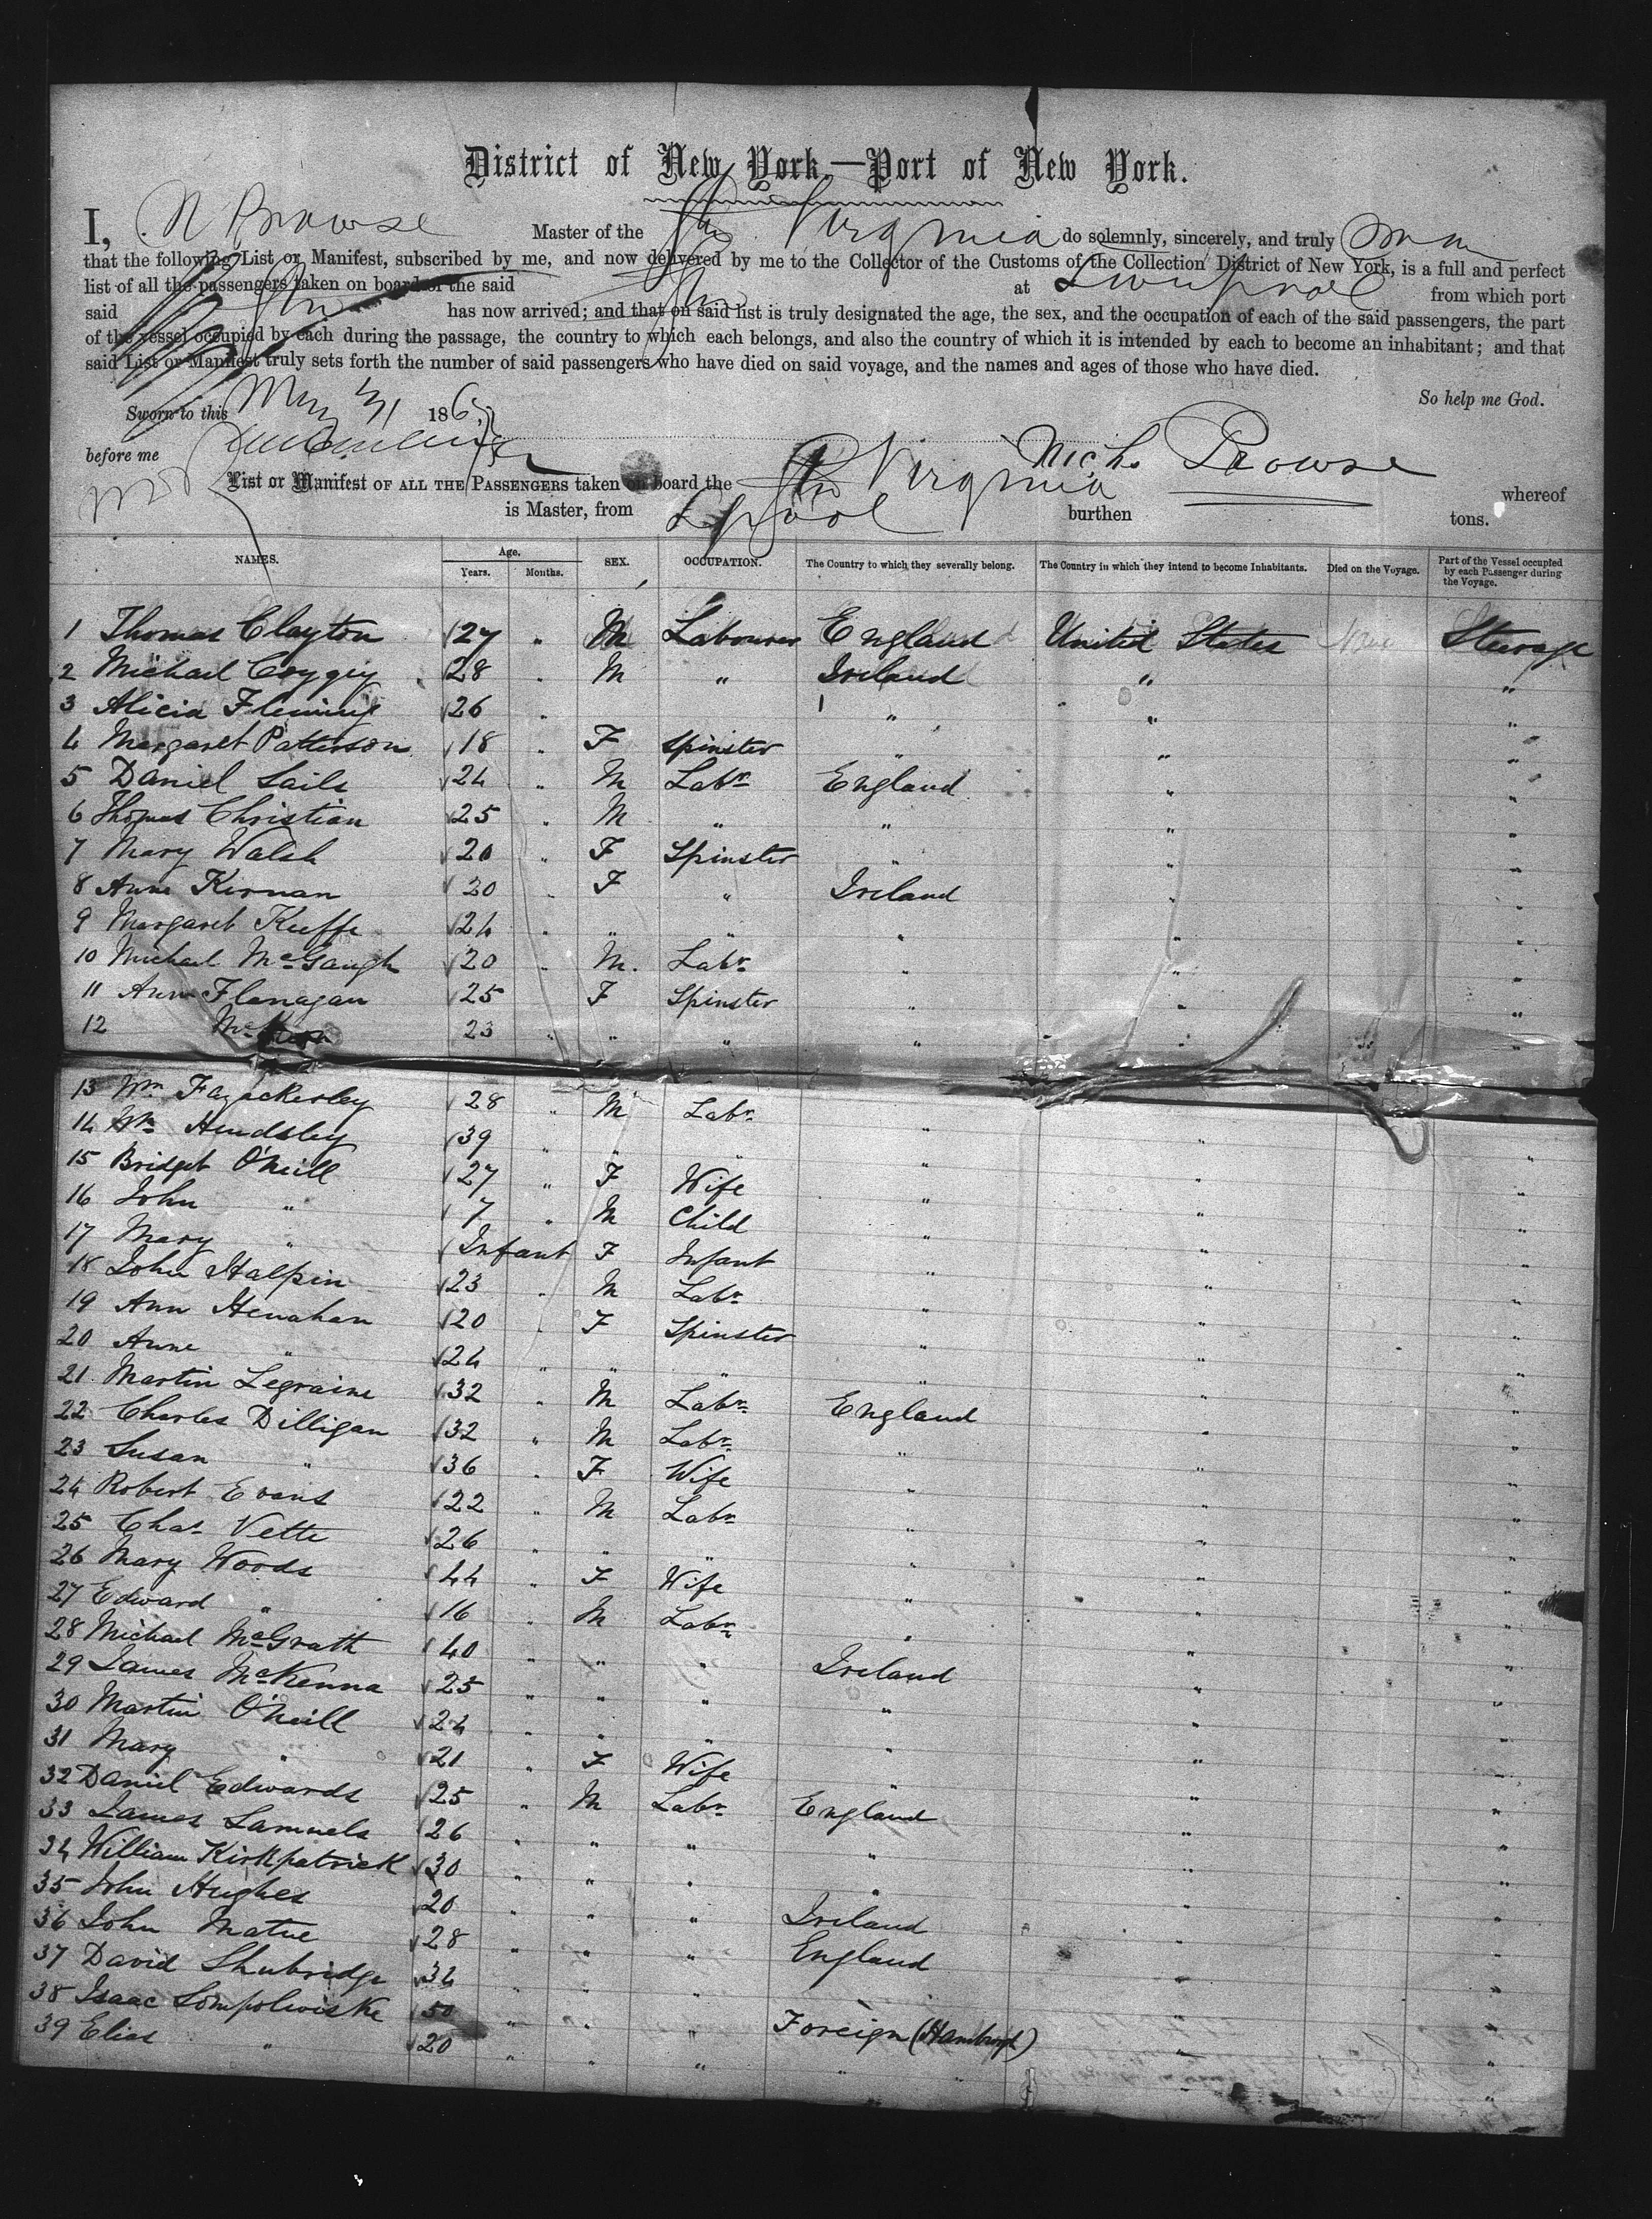 District of New York,—Port of New York.
I, N Prowse Master of the Str Virginia do solemnly, sincerely, and truly
that the following List or Manifest, subscribed by me, and now delivered by me to the Collector of the Customs of the Collection District of New York, is a full and perfect
list of all the passengers taken on board of the said Str at Liverpool from which port
said Str has now arrived; and that on said list is truly designated the age, the sex, and the occupation of each of the said passengers, the part
of the vessel occupied by each during the passage, the country to which each belongs, and also the country of which it is intended by each to become an inhabitant; and that
said List or Manifest truly sets forth the number of said passengers who have died on said voyage, and the names and ages of those who have died.
So help me God.
Sworn to this 186
before me
Nichs Prowse
List or Manifest OF ALL THE PASSENGERS taken on board the Str Virginia whereof
is Master, from Lpool burthen tons.
NAMES. Age. Years. Months. SEX. OCCUPATION. The Country to which they severally belong. The Country in which they intend to become Inhabitants. Died on the Voyage. Part of the Vessel occupied by each Passenger during the Voyage.
1 Thomas Clayton 27 " M Labourer England United States None Steerage
2 Michael 28 " M " Ireland " "
3 Alicia Fleming 26 " " " "
4 Margaret Patterson 18 " F Spinster " " "
5 Daniel Sails 24 " M Labr England " "
6 Thomas Christian 25 " M " " " "
7 Mary Walsh 20 " F Spinster " " "
8 Anne Kernan 20 " F " Ireland " "
9 Margaret Keeffe 24 " " " " " "
10 Michael McGaugh 20 " M. Labr " " "
11 Ann Flanagan 25 " F Spinster " " "
12 23 " " " " " "
13 Wm Fazackerley 28 " M Labr " " "
14 Wm Hendsley 39 " " " " " "
15 Bridget O'Neill 27 " F Wife " " "
16 John " 7 " M Child " " "
17 Mary " Infant F Infant " " "
18 John Halpin 23 " M Labr " " "
19 Ann Henahan 20 " F Spinster " " "
20 Anne " 24 " " " " " "
21 Martin Legraine 32 " M Labr England " "
22 Charles Dilligan 32 " M Labr " " "
23 Susan " 36 " F Wife " " "
24 Robert Evans 22 " M Labr " " "
25 Chas Vette 26 " " " " " "
26 Mary Woods 44 " F Wife " " "
27 Edward " 16 " M Labr " " "
28 Michael McGrath 40 " " " Ireland " "
29 James McKenna 25 " " " " " "
30 Martin O'Neill 24 " " " " " "
31 Mary " 21 " F Wife " " "
32 Daniel Edwards 25 " M Labr England " "
33 James Samuels 26 " " " " " "
34 William Kirkpatrick 30 " " " " " "
35 John Hughes 20 " " " Ireland " "
36 John Matue 28 " " " England " "
37 David Shubridge 34 " " " " "
38 Isaac 50 " " " Foreign (Hamburgh) " "
39 Elias " 20 " " " " " "